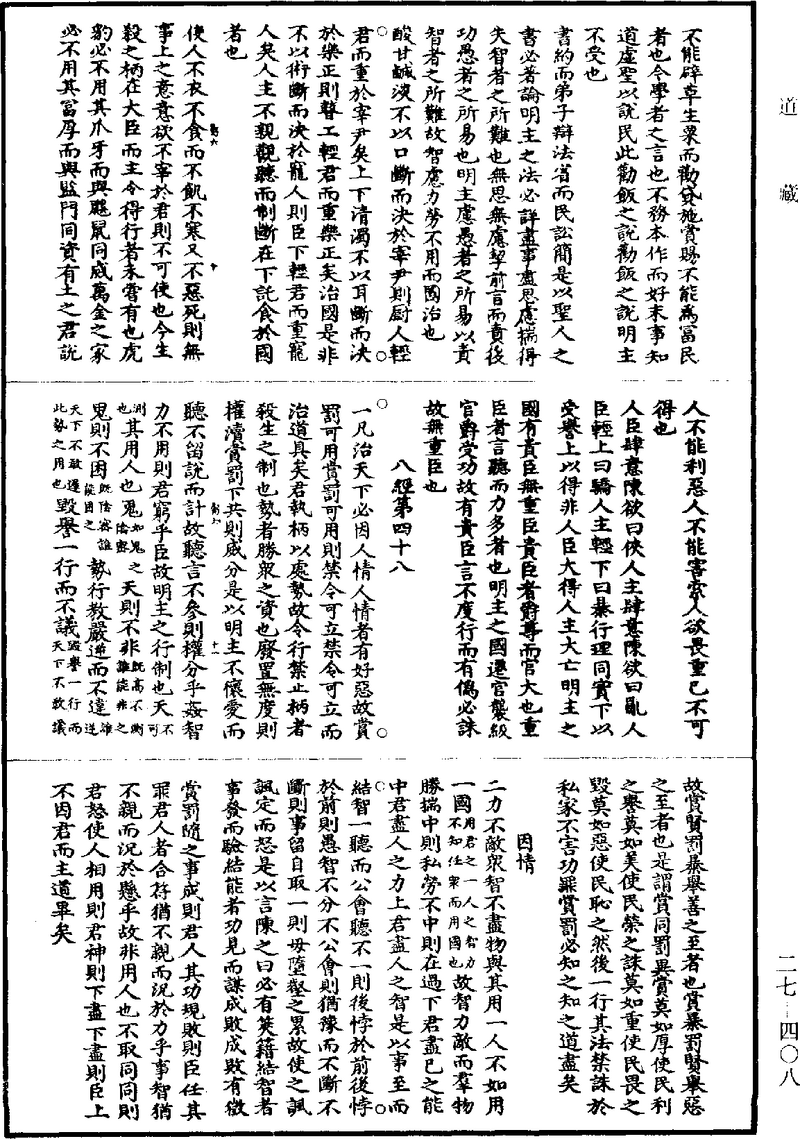 道藏
不能辟草生粟而勸貸施賞賜不能為富民
者也今學者之言也不務本作而好末事知
道虛聖以說民此勸飯之說勸飯之說明主
不受也
書約而弟子辯法省而民訟簡是以聖人之
書必著論明主之法必詳盡事盡思慮揣得
失智者之所難也無思無慮挈前言而責後
功愚者之所易也明主慮愚者之所易以責
智者之所難故智慮力勞不用而國治也
酸甘鹹淡不以口斷而決於宰尹則廚人輕
君而重於宰尹矣上下清濁不以耳斷而決
於樂正則瞽工輕君而重樂正矣治國是非
不以術斷而決於寵人則臣下輕君而重寵
人矣人主不親觀聽而制斷在下託食於國
者也
使人不衣不食而不飢不寒又不惡死則無
事上之意意欲不宰於君則不可使也今生
殺之柄在大臣而主令得行者未嘗有也虎
豹必不用其爪牙而與鼷鼠同威萬金之家
必不用其富厚而與監門同資有土之君說
人不能利惡人不能害索人欲畏重己不可
得也
人臣肆意陳欲曰俠人主肆意陳欲曰亂人
臣輕上曰驕人主輕下曰暴行理同實下以
受譽上以得非人臣大得人主大亡明主之
國有貴臣無重臣貴臣者爵尊而官大也重
臣者言聽而力多者也明主之國遷官襲級
官爵受功故有貴臣言不度行而有偽必誅
故無重臣也
八經第四十八
一凡治天下必因人情人情者有好惡故賞
罰可用賞罰可用則禁令可立禁令可立而
治道具矣君執柄以處勢故令行禁止柄者
殺生之制也勢者勝衆之資也廢置無度則
權瀆賞罰下共則威分是以明主不懷愛而
聽不留說而計故聽言不參則權分乎姦智
力不用則君窮乎臣故明主之行制也天不可
測也其用人也鬼如鬼之陰密天則不非既高不測誰能非之
鬼則不困既陰密誰能困之勢行教嚴逆而不違雖逆
天下不敢違此勢之用也毀譽一行而不議毀譽一行而天下不敢議
故賞賢罰暴舉善之至者也賞暴罰賢舉惡
之至者也是謂賞同罰異賞莫如厚使民利
之譽莫如美使民榮之誅莫如重使民畏之
毀莫如惡使民恥之然後一行其法禁誅於
私家不害功罪賞罰必知之知之道盡矣
因情
二力不敵衆智不盡物與其用一人不如用
一國用君之一人之智力不知任衆而用國也故智力敵而羣物
勝揣中則私勞不中則在過下君盡己之能
中君盡人之力上君盡人之智是以事至而
結智一聽而公會聽不一則後悖於前後悖
於前則愚智不分不公會則猶豫而不斷不
斷則事留自取一則毋墮壑之累故使之諷
諷定而怒是以言陳之曰必有筴籍結智者
事發而驗結能者功見而謀成敗成敗有徵
賞罰隨之事成則君人其功現敗則臣任其
罪君人者合符猶不親而況於力乎事智猶
不親而況於懸乎故非用人也不取同同則
君怒使人相用則君神則下盡下盡則臣上
不因君而主道畢矣
二七—四〇八